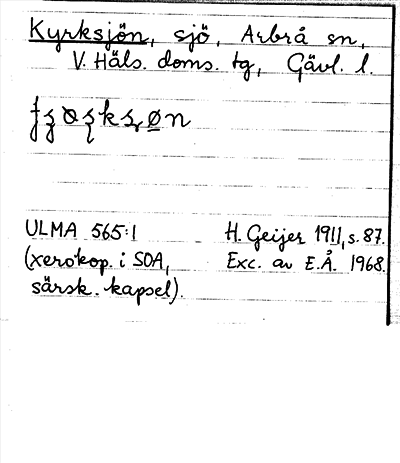 Kyrksjön, sjö, Arbrå sn,
V. Häls. doms. tg, Gävl. l.
ULMA 565:1 H. Geijer 1911, s. 87.
(xerokop. i SOA, Exc. av E.Å. 1968.
särsk. kapsel).